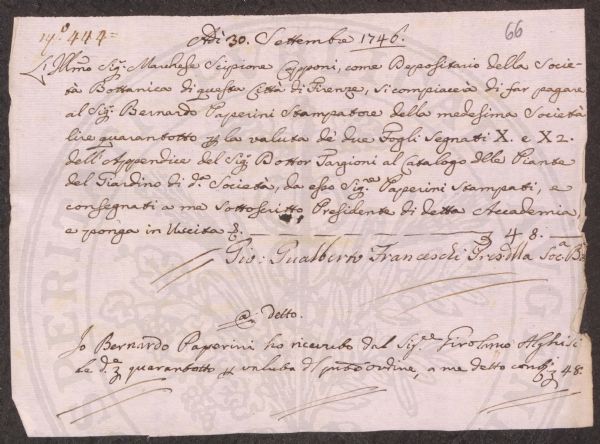 N.º 444=
Adì 30. Settembre 1746.
66
Illmo Sig. Marchese Scipione Capponi, come Depositario della Socie-
tà Bottanica di questa Città di Firenze, si compiacerà di far pagare
al Sig. Bernardo Paperini Stampatore della medesima Società
lire quarantotto p la valuta de due Fogli Segnati X. e X2.
dell'Appendice del Sig. Dottor Targioni al Catalogo delle Piante
del Giardino di d.ª Società, da esso Sig.re Paperini Stampati, e
consegnati a me sottoscritto Presidente di detta Accademia,
e ponga in Uscita 48.
Gio: Gualberto Franceschi Pres. della Soc.ª
@ detto.
Io Bernardo Paperini ho ricevuto dal Sig.re Girolmo
d.e quarantotto p valuta d. ordine, a me detto 48.